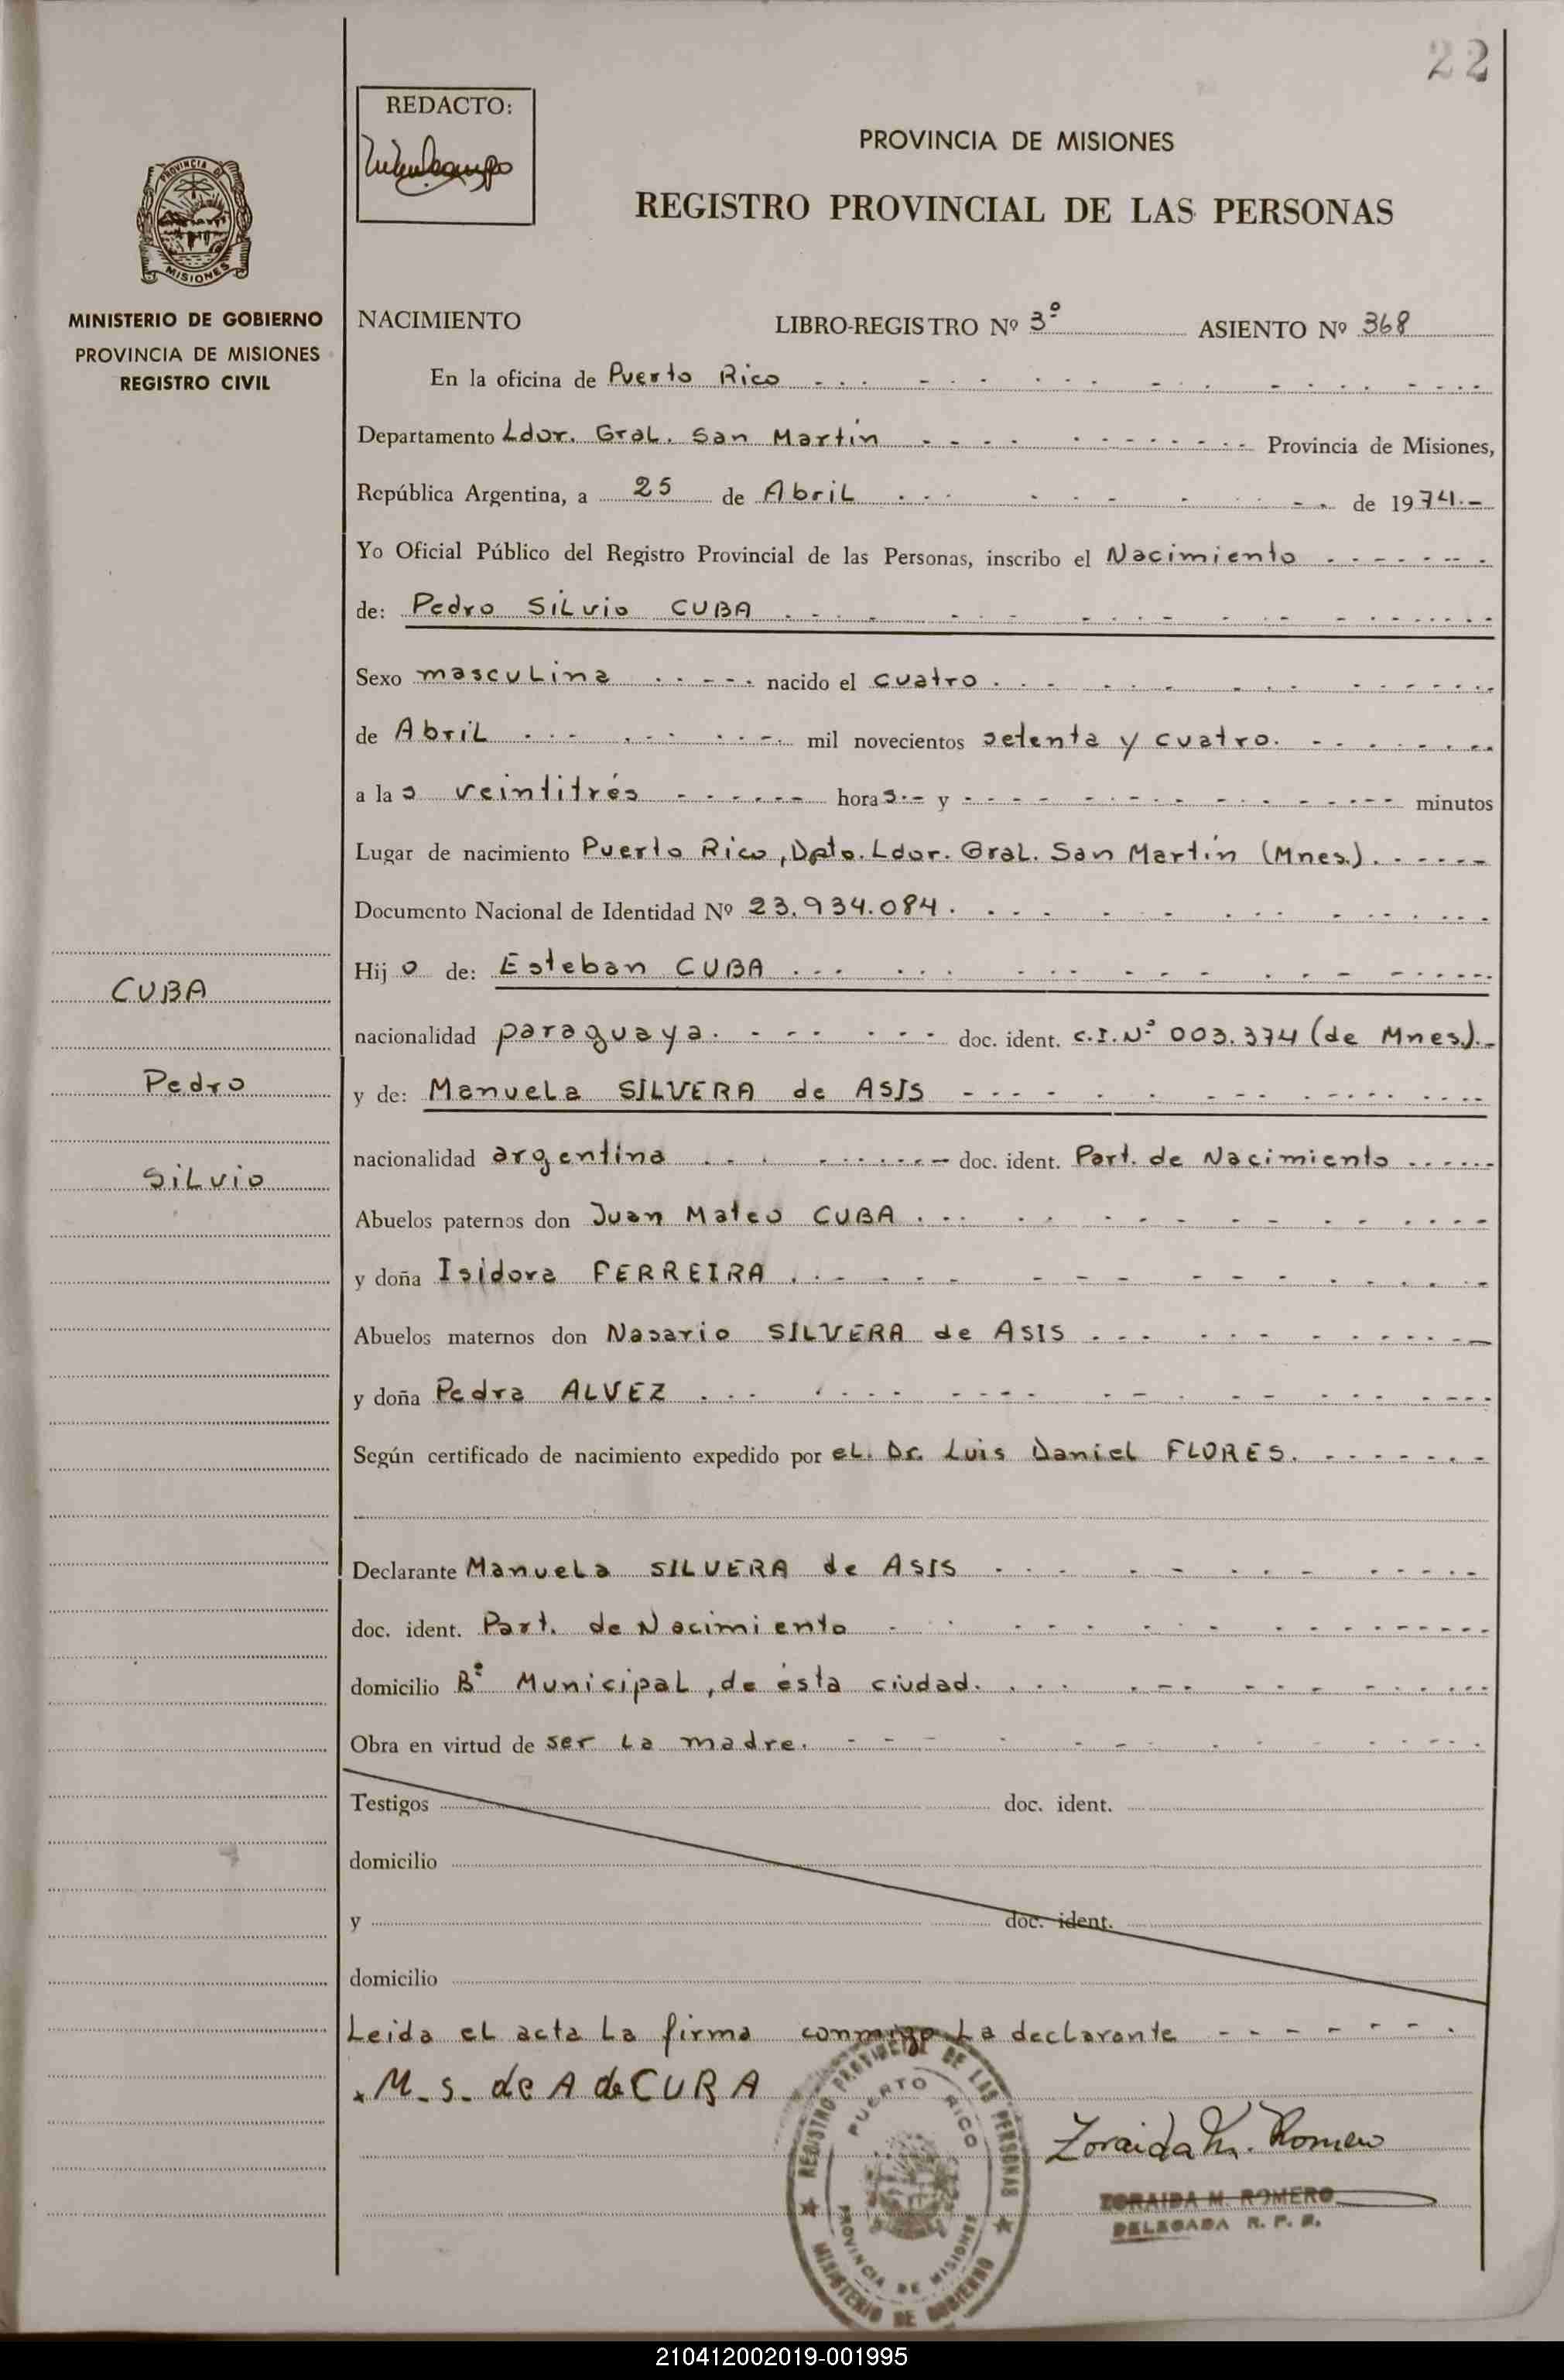 22
REDACTO:
PROVINCIA DE MISIONES
REGISTRO PROVINCIAL DE LAS PERSONAS
PROVINCIA D
MISIONES
MINISTERIO DE GOBIERNO
PROVINCIA DE MISIONES
REGISTRO CIVIL
NACIMIENTO LIBRO-REGISTRO Nº 3º ASIENTO Nº 368
En la oficina de Puerto Rico
Departamento Ldor. Gral. San Martín Provincia de Misiones,
República Argentina, a 25 de Abril de 1974.-
Yo Oficial Público del Registro Provincial de las Personas, inscribo el Nacimiento
de: Pedro Silvio CUBA
Sexo masculina nacido el cuatro
de Abril mil novecientos setenta y cuatro.
a las veintitrés horas.- y minutos
Lugar de nacimiento Puerto Rico, Dpto. Ldor. Gral. San Martín (Mnes).
Documento Nacional de Identidad Nº 23.934.084.
Hijo de: Esteban CUBA
CUBA
nacionalidad paraguaya. doc. ident. C.I.Nº 003.374 (de Mnes).-
Pedro
y de: Manuela SILVERA de ASIS
nacionalidad argentina doc. ident. Part. de Nacimiento
Silvio
Abuelos paternos don Juan Mateo CUBA
y doña Isidora FERREIRA
Abuelos maternos don Nasario SILVERA de ASIS
y doña Pedra ALVEZ
Según certificado de nacimiento expedido por el Dr. Luis Daniel FLORES.
Declarante Manuela SILVERA de ASIS
doc. ident. Part. de Nacimiento
domicilio Bº Municipal, de ésta ciudad.
Obra en virtud de ser la madre.
Testigos doc. ident.
domicilio
y doc. ident.
domicilio
Leida el acta la firma conmigo la declarante
M. S. de A de CUBA
REGISTRO PROVINCIAL DE LAS PERSONAS
PUERTO RICO
PROVINCIA DE MISIONES
MINISTERIO DE GOBIERNO
Zoraida M. Romero
ZORAIDA M. ROMERO
DELEGADA R. P. P.
210412002019-001995